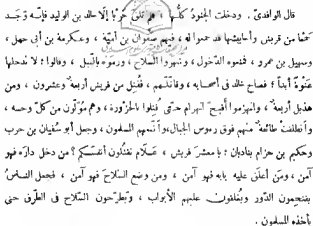 قال الواقدىّ. ودخلت الجنودُ كلُّها، فلم تلق حربًا إلّا خالد بن الوليد فإنّه وَجَد
جَمْعًا من قريش وأحابيشها قد جمعوا له، فيهم صفوان بن أميّة، وعكرمة بن أبى جهل،
وسهيل بن عمرو، فمنعوه الدّخول، وشهروا السّلاح، ورمَوْه بالنّبل، وقالوا: لا تدخلها
عَنْوةً أبدا؛ فصاح خالد فى أصحابه، وقاتلهم، فقُتِل من قريش أربعة وعشرون، ومن
هُذيل أربعة، وانهزموا أقبح انهزام حتّى قُتِلوا بالحَزْوَرة، وهم مُوَلُّون من كلّ وجه،
وانطلقت طائفةٌ منهم فوق رءوس الجبال، وأتبعهم المسلمون، وجعل أبو سُفيان بن حرب
وحكيم بن حزام يناديان: يا معشر قريش، عَلَامَ تقتلون أنفسكم؟ من دخل دارَه فهو
آمن، ومَنْ أغلق عليه بابه فهو آمن، ومن وضع السّلاح فهو آمن، فجعل النّاسُ
يقتحمون الدّور ويُغلقون عليهم الأبواب، ويَطرحون السّلاح فى الطّرق حتى
يأخذه المسلمون.